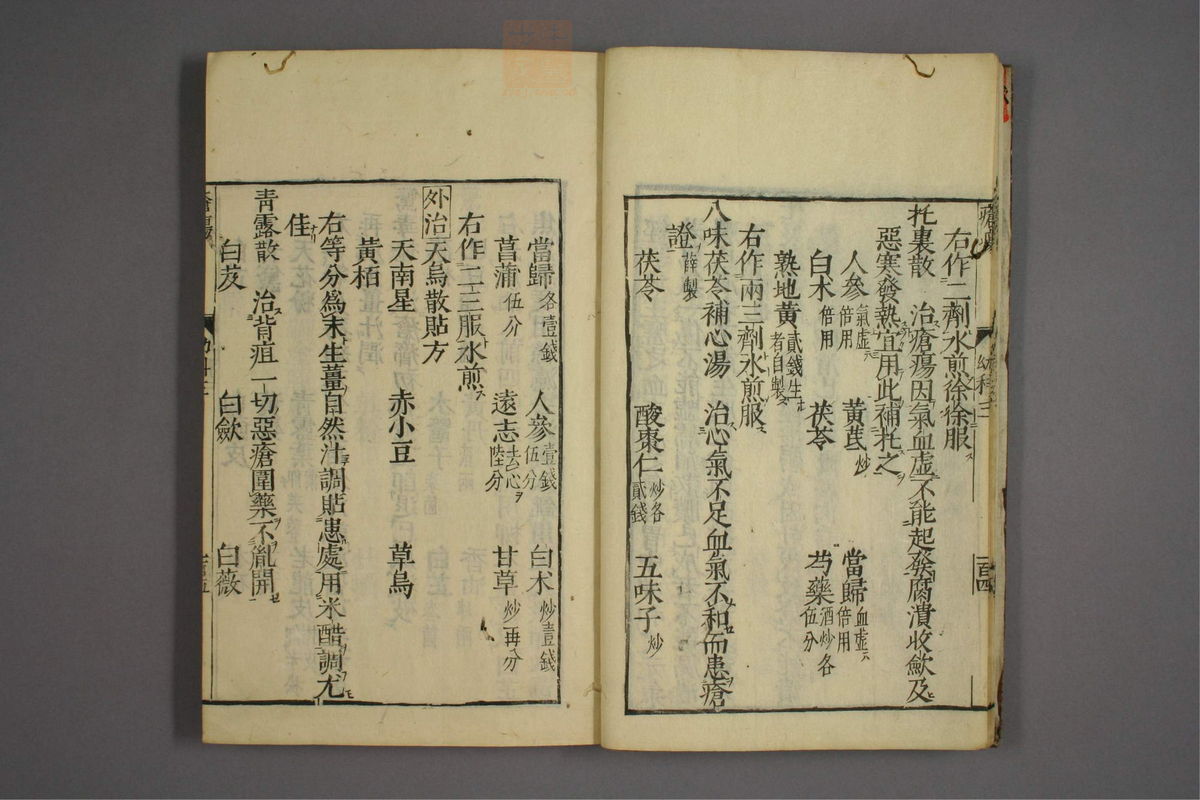 右作二劑水煎徐徐服
托裏散 治瘡瘍因氣血虛不能起發腐潰收歛及
惡寒發熱宜用此補托之
人參氣虛倍用 黃芪炒 當歸血虛倍用
白朮倍用 茯苓 芍藥酒炒各伍分
熟地黃貳錢生者自製
右作兩三劑水煎服
八味茯苓補心湯 治心氣不足血氣不和而患瘡
證薛製
茯苓 酸棗仁炒各貳錢 五味子炒
當歸各壹錢 人參壹錢伍分 白朮炒壹錢
菖蒲伍分 遠志去心陸分 甘草炒再分
右作二三服水煎
外治天烏散貼方
天南星 赤小豆 草烏
黃栢
右等分爲末生薑自然汁調貼患處用米醋調尤
佳
青露散 治背疽一切惡瘡圍藥不亂開
白芨 白歛 白薇
幼科三
百四